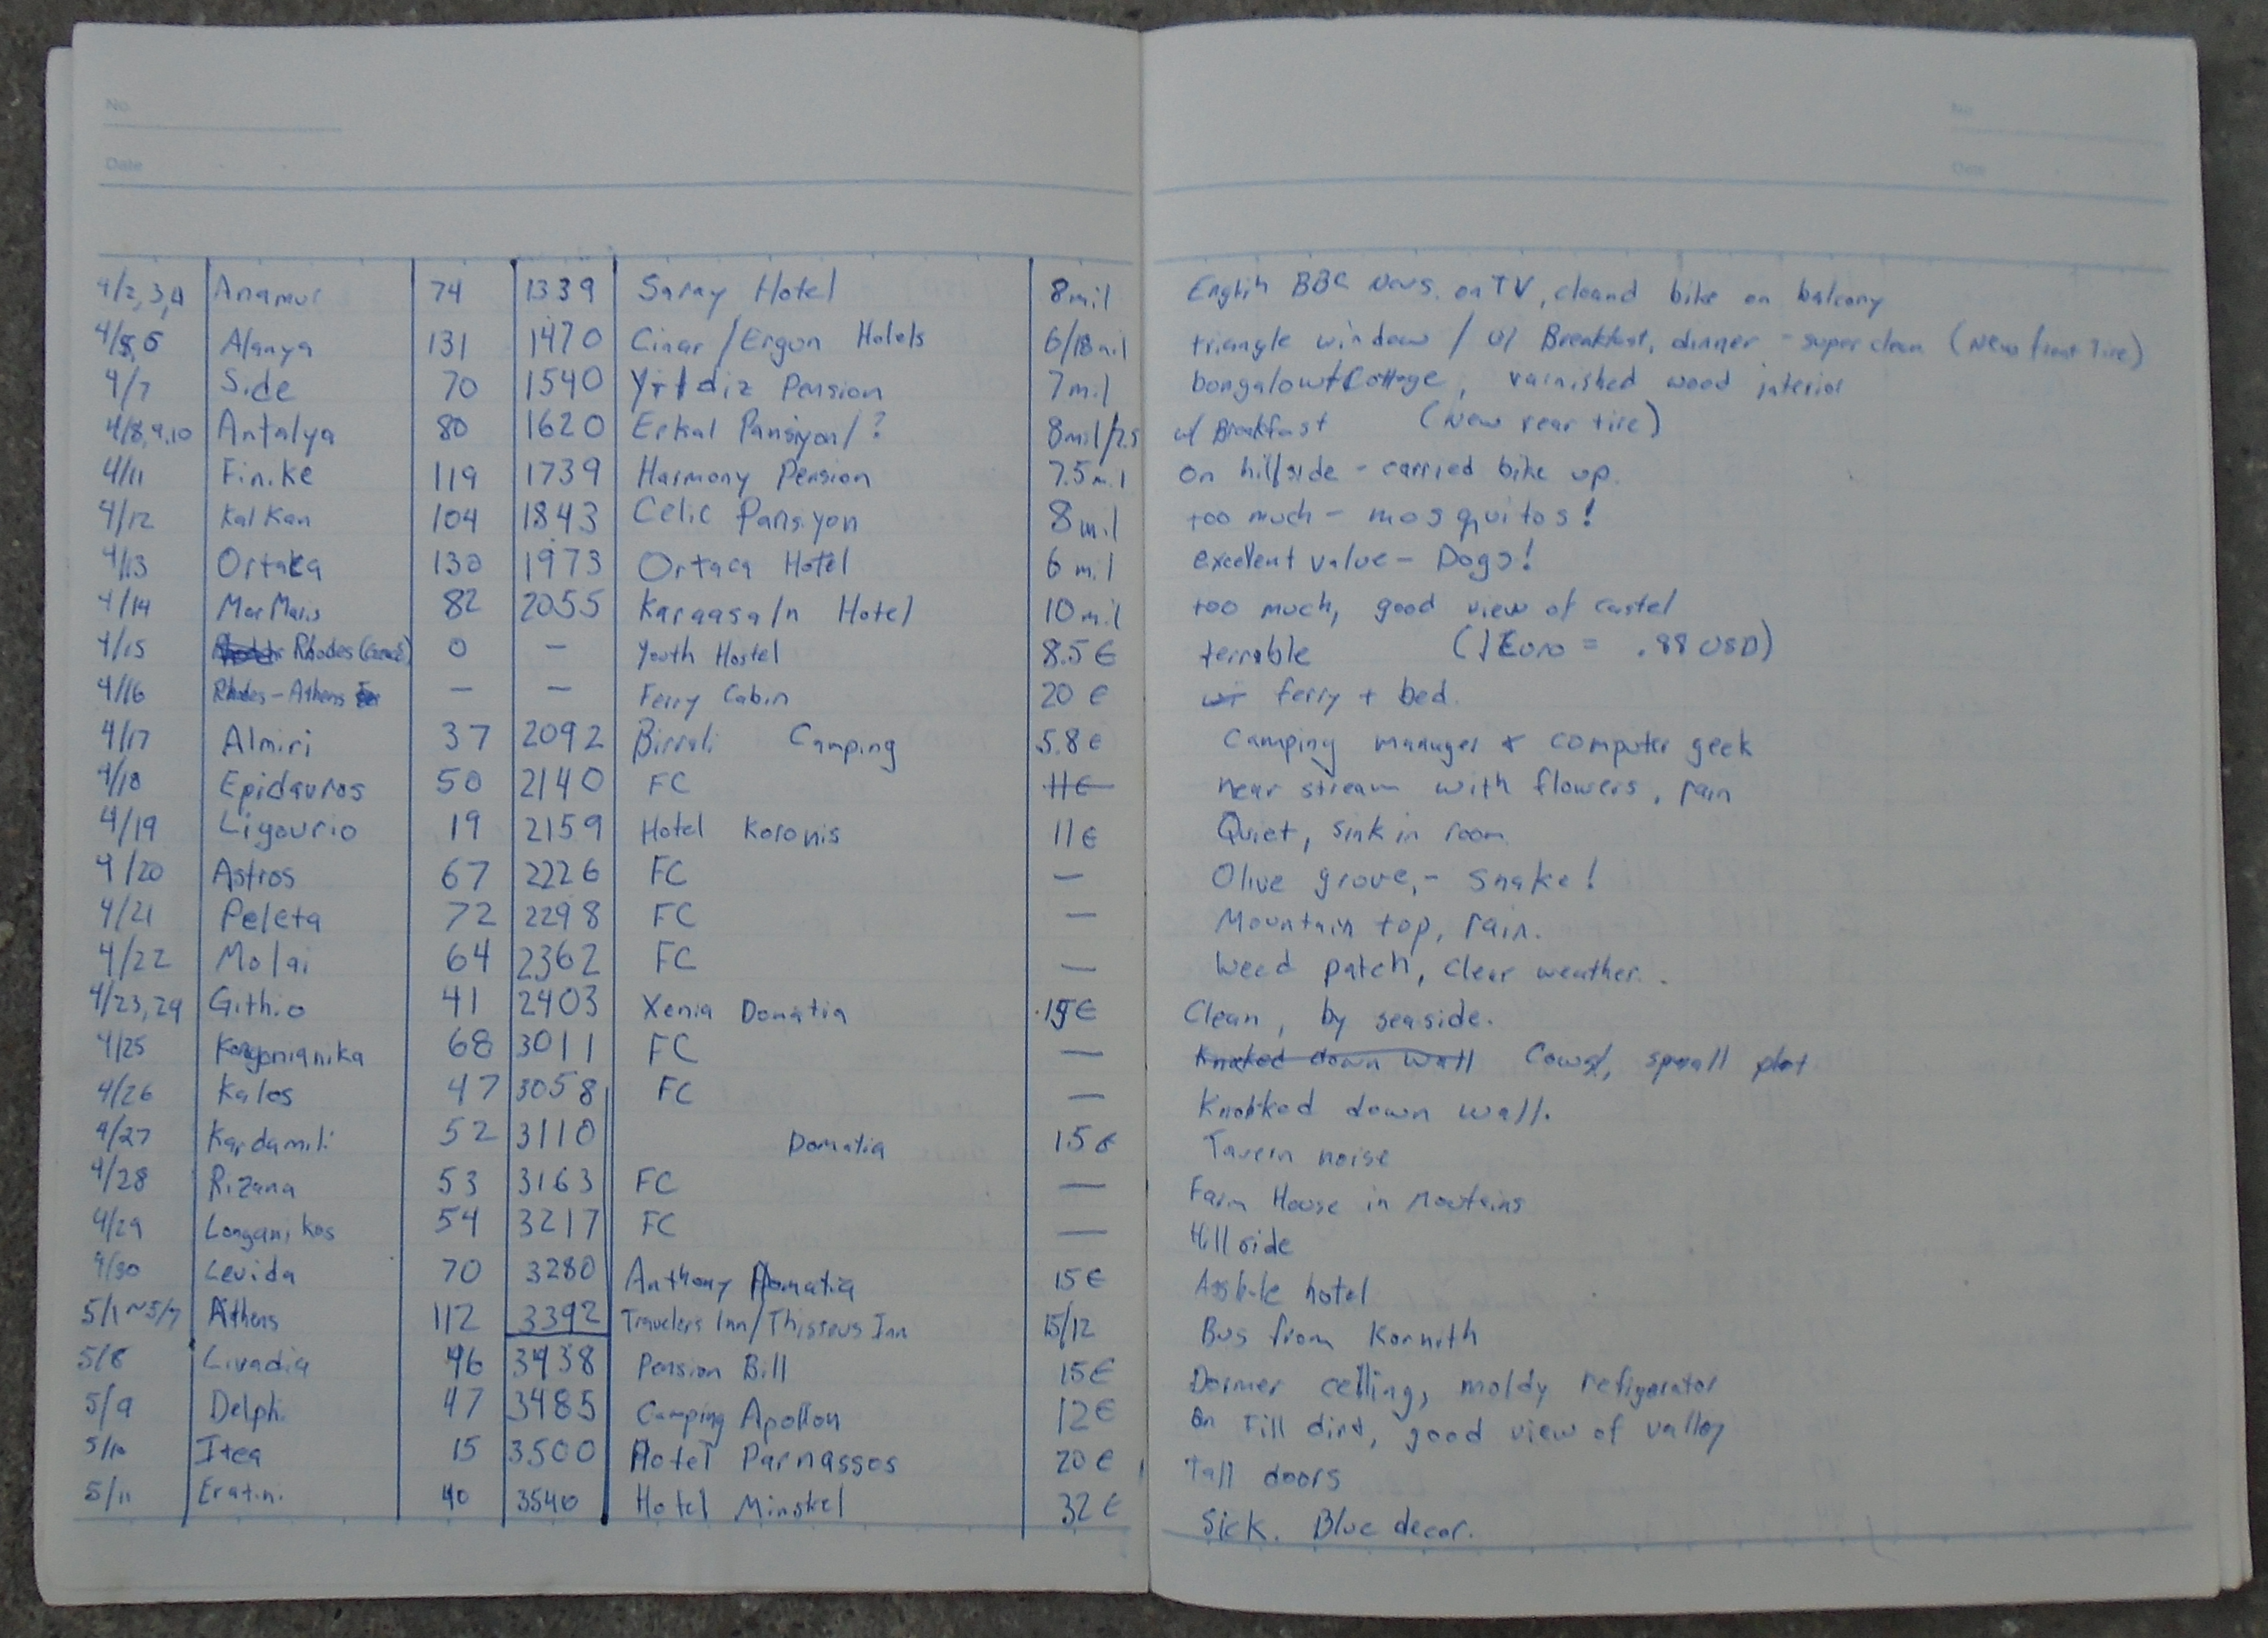 No.
Date
No.
Date
4/2,3,4 Anamur 74 1339 Saray Hotel 8mil English BBC News on TV, cleand bike on balcony
4/5,6 Alanya 131 1470 Cinar/Ergun Hotels 6/18mil triangle window / w/ Breakfast, dinner - super clean (New front tire)
4/7 Side 70 1540 Pension 7mil Cottage, varnished wood interior
4/8,9,10 Antalya 80 1620 Erkal Pansiyon/? 8mil/7.5 w/ Breakfast (New rear tire)
4/11 Finike 119 1739 Harmony Pension 7.5mil on hillside - carried bike up.
4/12 Kalkan 104 1843 Celic Pansiyon 8mil too much - mosquitos!
4/13 Ortaca 130 1973 Ortaca Hotel 6mil excellent value - Dogs!
4/14 MarMaris 82 2055 Hotel 10mil too much, good view of castel
4/15 Rhodes 0 — Youth Hostel 8.5€ terrable (1Euro = .88 USD)
4/16 Rhodes - Athens — — Ferry Cabin 20€ ferry + bed.
4/17 Almiri 37 2092 Camping 5.8€ Camping manager & computer geek
4/18 Epidavros 50 2140 FC 11€ near stream with flowers, rain
4/19 Ligourio 19 2159 Hotel Koronis 11€ Quiet, sink in room
4/20 Astros 67 2226 FC — Olive grove, - snake!
4/21 Peleta 72 2298 FC — Mountain top, rain.
4/22 Molai 64 2362 FC — Weed patch, clear weather.
4/23,24 Githio 41 2403 Xenia Domatia 15€ Clean, by seaside.
4/25 68 3011 FC — Knocked down wall Cows, small plot
4/26 Kalos 47 3058 FC — Knocked down wall.
4/27 Kardamili 52 3110 Domatia 15€ Tavern noise
4/28 Rizana 53 3163 FC — Farm House in Moutains
4/29 Longanikos 54 3217 FC — Hillside
4/30 Levida 70 3280 Anthony Domatia 15€ hotel
5/1~5/7 Athens 112 3392 Travelers Inn/Thisseus Inn 15/12 Bus from Kornith
5/8 Livadia 46 3438 Pension Bill 15€ Dormer celling, moldy refigerator
5/9 Delphi 47 3485 Camping Apollon 12€ On Till dirt, good view of valley
5/10 Itea 15 3500 Hotel Parnassos 20€ Tall doors
5/11 Eratini 40 3540 Hotel Minstrel 32€ Sick. Blue decor.